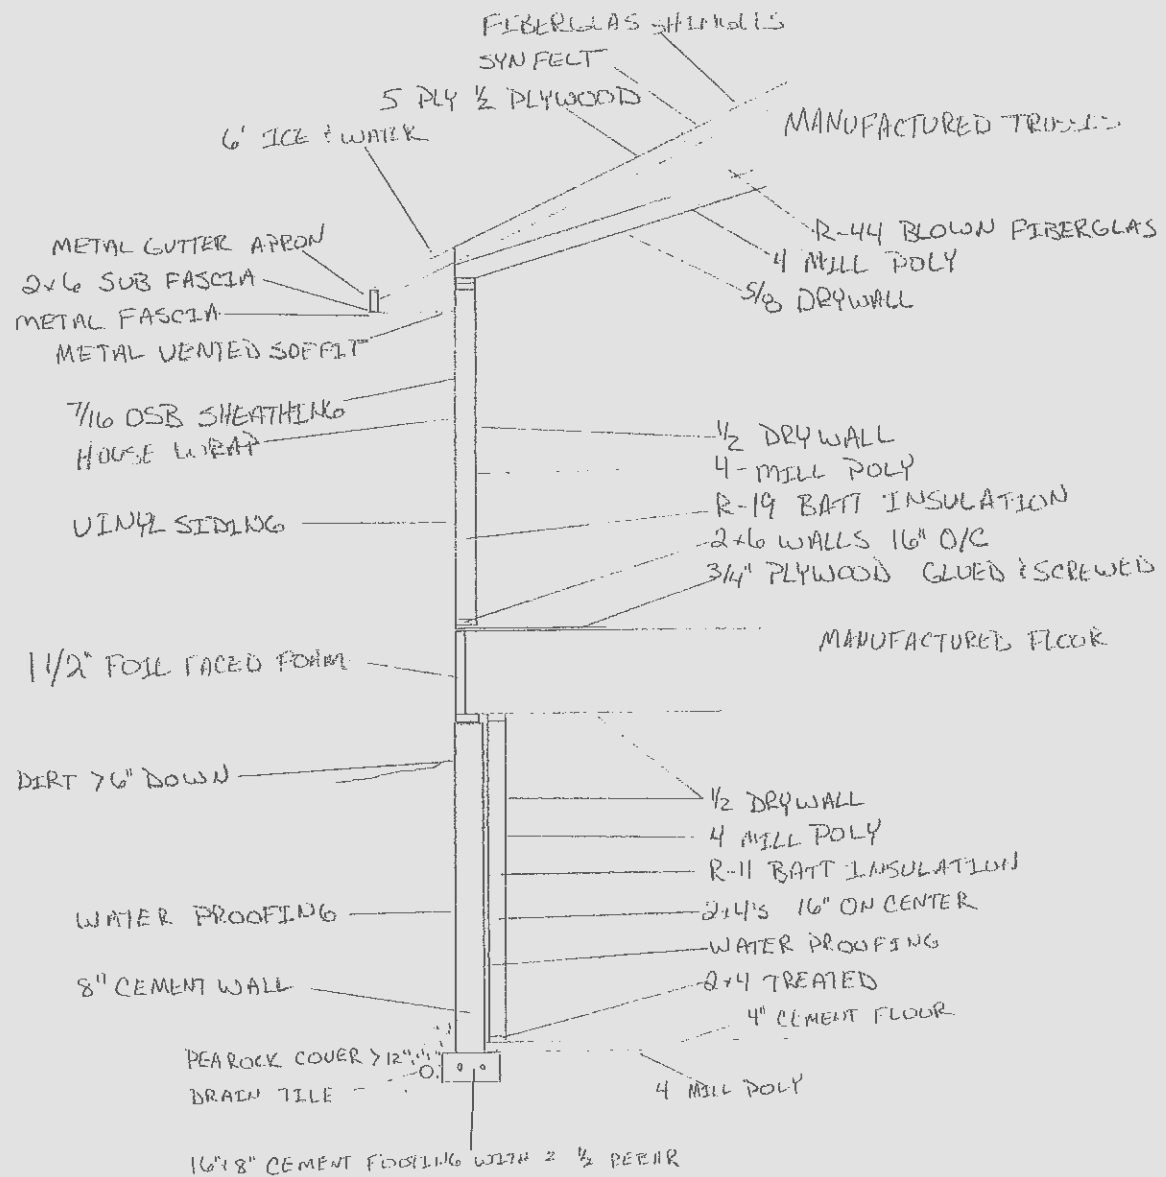 FIBERGLAS SHINGLES
SYN FELT
5 PLY 1/2 PLYWOOD
6' ICE & WATER
MANUFACTURED TRUSSES
METAL GUTTER APRON
2x6 SUB FASCIA
METAL FASCIA
METAL VENTED SOFFIT
R-44 BLOWN FIBERGLAS
4 MILL POLY
5/8 DRYWALL
7/16 OSB SHEATHING
HOUSE WRAP
VINYL SIDING
1/2 DRYWALL
4-MILL POLY
R-19 BATT INSULATION
2x6 WALLS 16" O/C
3/4" PLYWOOD GLUED & SCREWED
MANUFACTURED FLOOR
1 1/2" FOIL FACED FOAM
DIRT >6" DOWN
1/2 DRYWALL
4 MILL POLY
R-11 BATT INSULATION
2x4's 16" ON CENTER
WATER PROOFING
WATER PROOFING
2x4 TREATED
8" CEMENT WALL
4" CEMENT FLOOR
PEAROCK COVER >12"
DRAIN TILE
4 MILL POLY
16"x8" CEMENT FOOTING WITH 2 1/2 REBAR